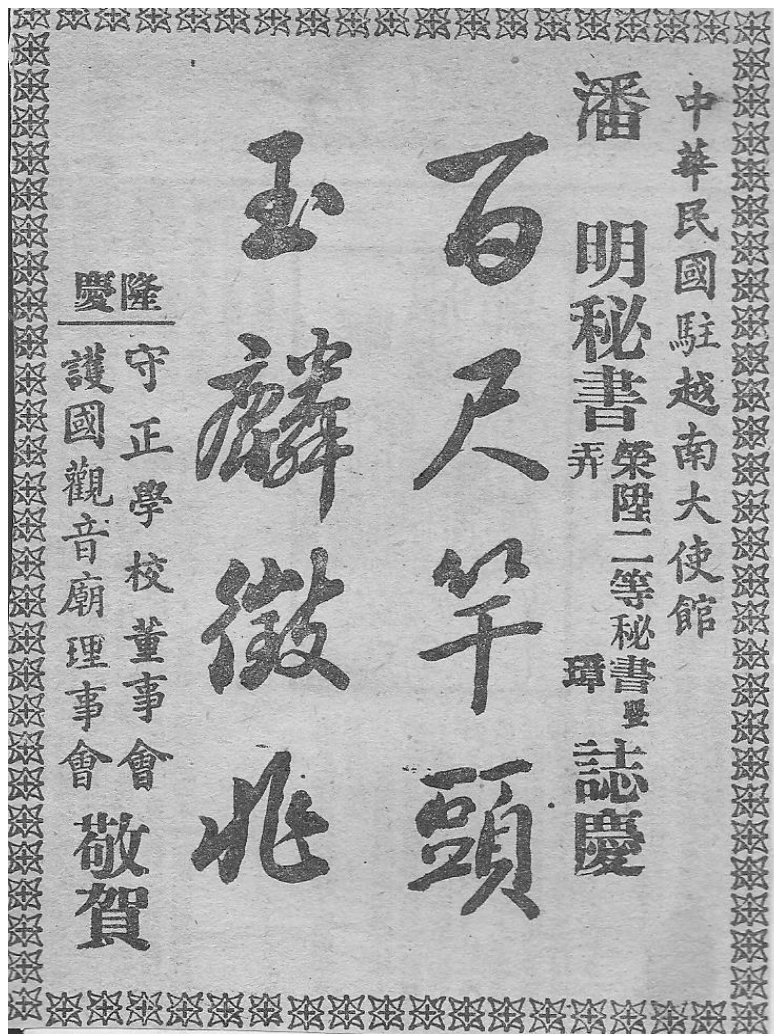 中華民國駐越南大使館
潘 明秘書榮陞二等秘書暨弄璋誌慶
百尺竿頭
玉麟徵兆
隆慶
守正學校董事會
護國觀音廟理事會
敬賀